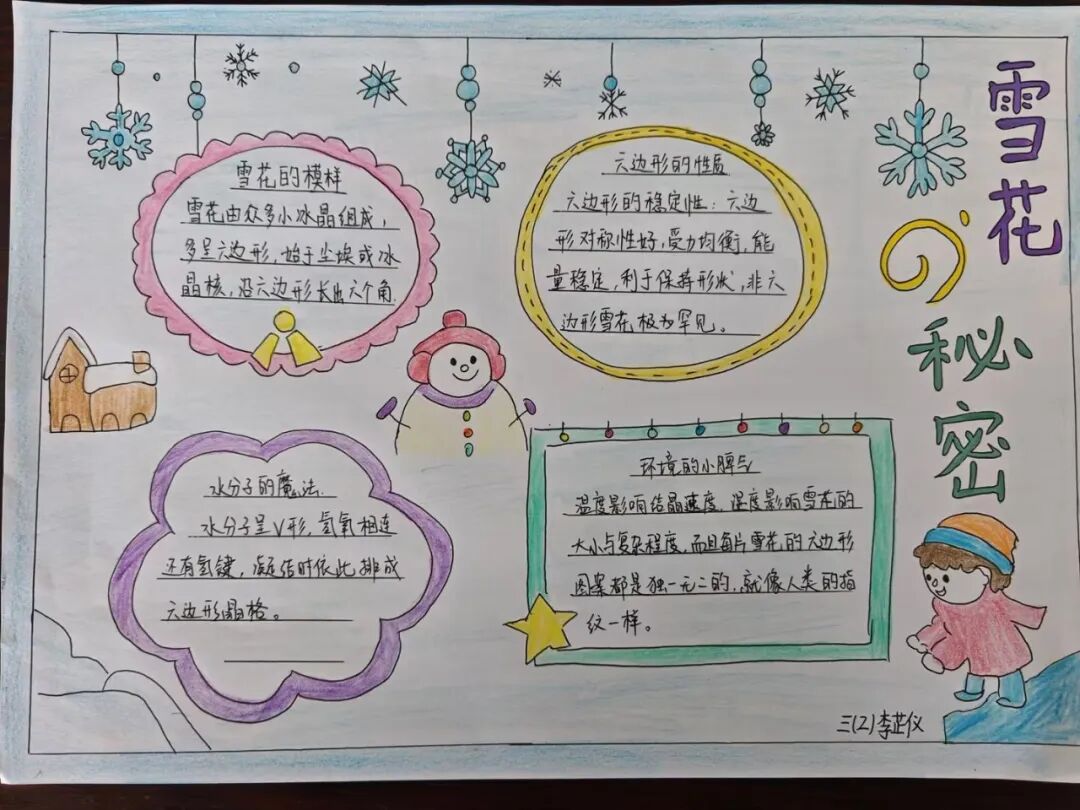 雪花的秘密
雪花的模样
雪花由众多小冰晶组成，
多呈六边形，始于尘埃或冰
晶核，沿六边形长出六个角.
六边形的性质
六边形的稳定性：六边
形对称性好，受力均衡，能
量稳定，利于保持形状，非六
边形雪花极为罕见。
水分子的魔法.
水分子呈V形，氢氧相连
还有氢键，凝结时依此排成
六边形晶格。
环境的小脾气
温度影响结晶速度，湿度影响雪花的
大小与复杂程度，而且每片雪花的六边形
图案都是独一无二的，就像人类的指
纹一样。
三(2)李芷仪